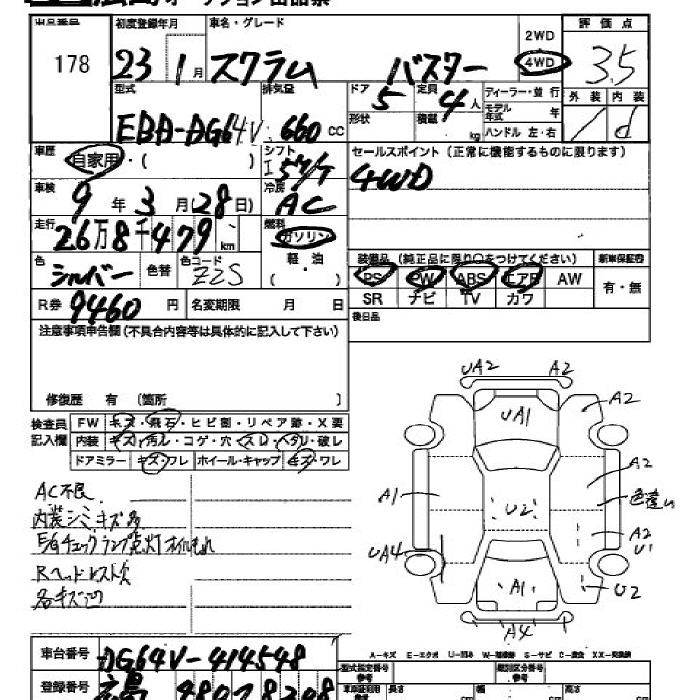 オークション出品票
出品番号 178
初度登録年月 23 1月
車名・グレード スクラム バスター
2WD
4WD
評価点 3.5
型式 EBD-DG64V
排気量 660 cc
ドア 5
定員 4人
形状
積載 kg
ディーラー・並行
モデル年式 年
ハンドル 左・右
外装 /
内装 d
車歴 自家用・( )
シフト I 5MT
セールスポイント(正常に機能するものに限ります)
4WD
車検 9年3月28日
冷房 AC
走行 26万8千479 km
燃料 ガソリン
軽・油
色 シルバー 色替 色コード Z2S
装備品(純正品に限り○をつけてください) 新車保証書
PS PW ABS エアB AW 有・無
SR ナビ TV カワ
R券 9460円 名変期限 月 日
後日品
注意事項申告欄(不具合内容等は具体的に記入して下さい)
修復歴 有 (箇所 )
検査員記入欄
FW キズ・飛石・ヒビ割・リペア跡・X要
内装 キズ・汚レ・コゲ・穴・スレ・ヘタリ・破レ
ドアミラー キズ・ワレ ホイール・キャップ キズ・ワレ
AC不良
内装シミキズ多
E/Gチェックランプ点灯オイルもれ
Rヘッドレスト欠
各キズ凹
UA2 A2
UA1 A2
A1 U2 A2
色違い
UA4 A2
U1
A1 U2
A4
A-キズ E-エクボ U-凹み W-補修跡 S-サビ C-腐食 XX-交換済
車台番号 DG64V-414548
型式指定番号 類別区分番号
登録番号 広島 480
長さ 幅 高さ